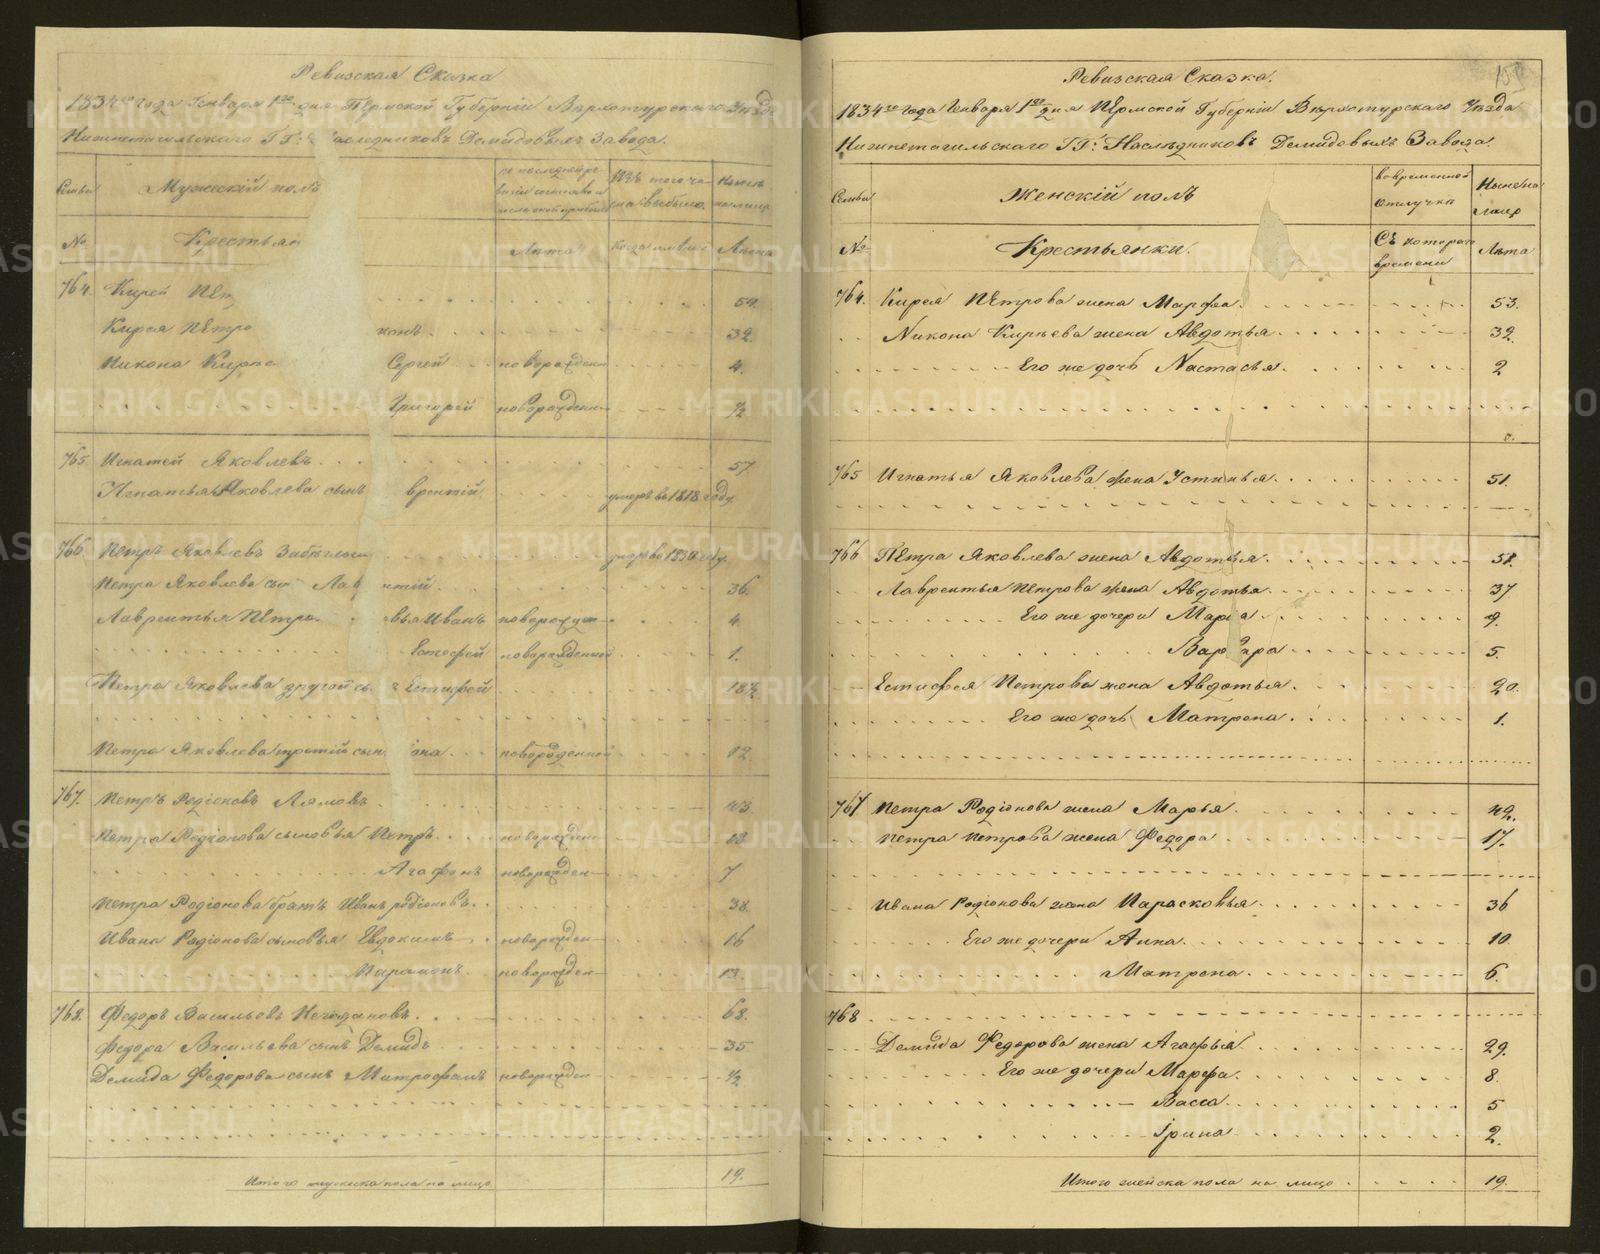 Ревизская Сказка
1834го года Генваря 1го дня Пермской Губерніи Верхотурскаго Уѣзда
Нижнетагильскаго ГГ: Наслѣдниковъ Демидовыхъ Завода.
Семьи Мужескій полъ
Изъ того числа выбыло
Нынѣ на лицо
№ Крестьян
Лѣта Когда имянно Лѣта
764. Кирей Петр
Кирея Петро конъ. 32.
Никона Кирѣе Сергей новорожден 4.
Григорей новорожден ½
765. Игнатей Яковлевъ. 57
Игнатья Яковлева сынъ врентій умеръ въ 1818 году.
766. Петръ Яковлевъ умеръ въ 1830 году.
Петра Яковлева сы Лав ентій. 36.
Лаврентья Петро вья Иванъ новорожден 4.
Естефей новорожденной 1.
Петра Яковлева другой сы ъ Естифей 18½
Петра Яковлева третій сын новорожденной 12
767. Петръ Родіоновъ Лямовъ 43
Петра Родіонова сыновья Петръ. новорожден 18
Агафонъ новорожден 7
Петра Родіонова братъ Иванъ родіоновъ. 38.
Ивана Родіонова сыновья Евдокимъ новорожден 16
Парамонъ. новорожден 13.
768. Федоръ Васильевъ 68.
Федора Васильева сынъ Демидъ 35
Демида Федорова сынъ Митрофанъ новорожден ½
Итого мужеска пола на лицо 19.
Ревизская Сказка.
1834го года Генваря 1го дня Пермской Губерніи Верхотурскаго Уѣзда
Нижнетагильскаго ГГ: Наслѣдниковъ Демидовыхъ Завода.
Семьи Женскій полъ во временной отлучкѣ Нынѣ на лицо
№ Крестьянки. Съ котораго времени Лѣта
764. Кирея Петрова жена Марфа. 53.
Никона Кирѣева жена Авдотья 32.
Его же дочь Настасья. 2
765 Игнатья Яковлева жена Устинья. 51.
766 Петра Яковлева жена Авдотья. 58.
Лаврентья Петрова жена Авдотья 37.
Его же дочери Марѳа 9.
Варвара 5.
Естифея Петрова жена Авдотья. 20.
Его же дочь Матрена. 1.
767 Петра Родіонова жена Марья. 42.
Петра Петрова жена Федора 17.
Ивана Родіонова жена Парасковья 36
Его же дочери Анна. 10.
Матрена. 6.
768
Демида Федорова жена Агафья 29.
Его же дочери Марфа. 8.
Васса. 5
Ірина 2.
Итого женска пола на лицо 19.
METRIKI.GASO-URAL.RU